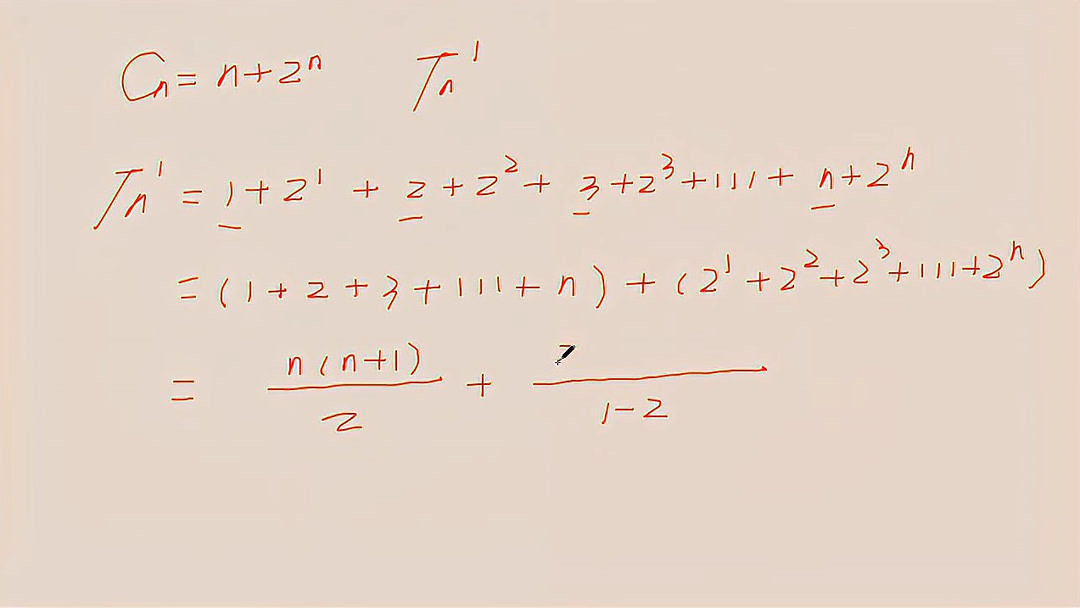 Cₙ = n+2ⁿ Tₙ'
Tₙ' = 1+2¹ + 2+2² + 3+2³+···+ n+2ⁿ
= (1+2+3+···+n) + (2¹+2²+2³+···+2ⁿ)
= n(n+1)/2 + /(1-2)